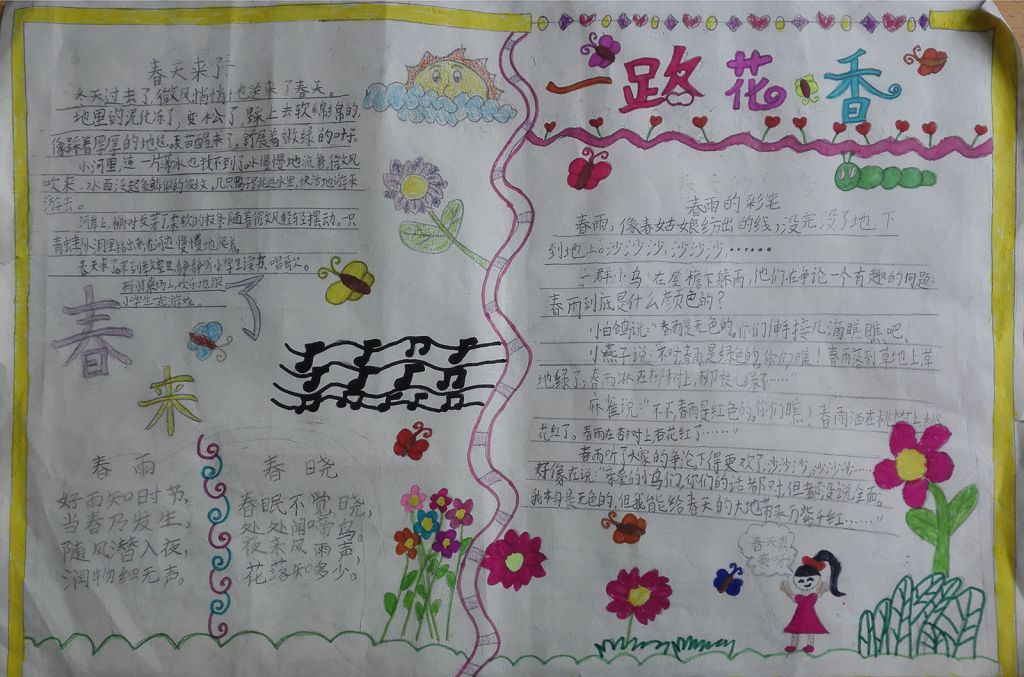 春天来了
冬天过去了,微风悄悄地送来了春天。
地里的泥化冻了,变松了,踩上去软绵绵的,
像踩着厚厚的地毯。麦苗醒来了,舒展着嫩绿的叶子。
小河里,连一片薄冰也找不到了。水慢慢地流着,微风
吹来,水面泛起鱼鳞似的波纹,几只鸭子跳进水里,快活地游来
游去。
河岸上,柳树发芽了,柔软的枝条随着微风轻轻摆动。一只
青蛙从洞里钻出来,在河边慢慢地爬着。
春天来了,来到教室里,静静听小学生读书、唱歌。
来到操场上,欢乐地跟
小学生一起游戏。
春
来
了
春雨
好雨知时节,
当春乃发生,
随风潜入夜,
润物细无声。
春晓
春眠不觉晓,
处处闻啼鸟。
夜来风雨声,
花落知多少。
一路花香
春雨的彩笔
春雨,像春姑娘纺出的线,没完没了地下
到地上。沙沙沙,沙沙沙,……
一群小鸟在屋檐下躲雨,他们在争论一个有趣的问题:
春雨到底是什么颜色的?
小白鸽说:“春雨是无色的。你们伸手接几滴瞧瞧吧。
小燕子说:“不对,春雨是绿色的。你们瞧!春雨落到草地上,草
地绿了;春雨淋在柳树上,柳枝儿绿了……”
麻雀说:“不,不,春雨是红色的。你们瞧!春雨洒在桃树上,桃
花红了。春雨在杏树上,杏花红了……”
春雨听了大家的争论下得更欢了,沙沙沙,沙沙沙……
好像在说:“亲爱的小鸟们,你们的话都对,但都没说全面。
我本身是无色的,但我能给春天的大地带来万紫千红……”
春天真
美呀